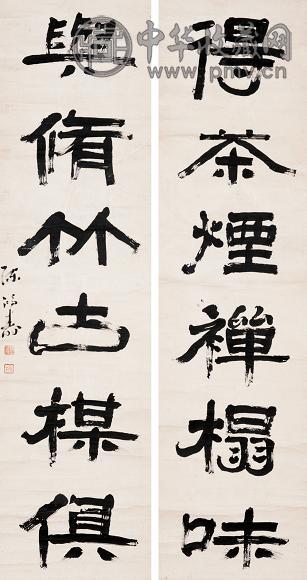 中华收藏网
www.pmv.cn
得茶煙禪榻味
與脩竹古楳俱
陳鴻壽